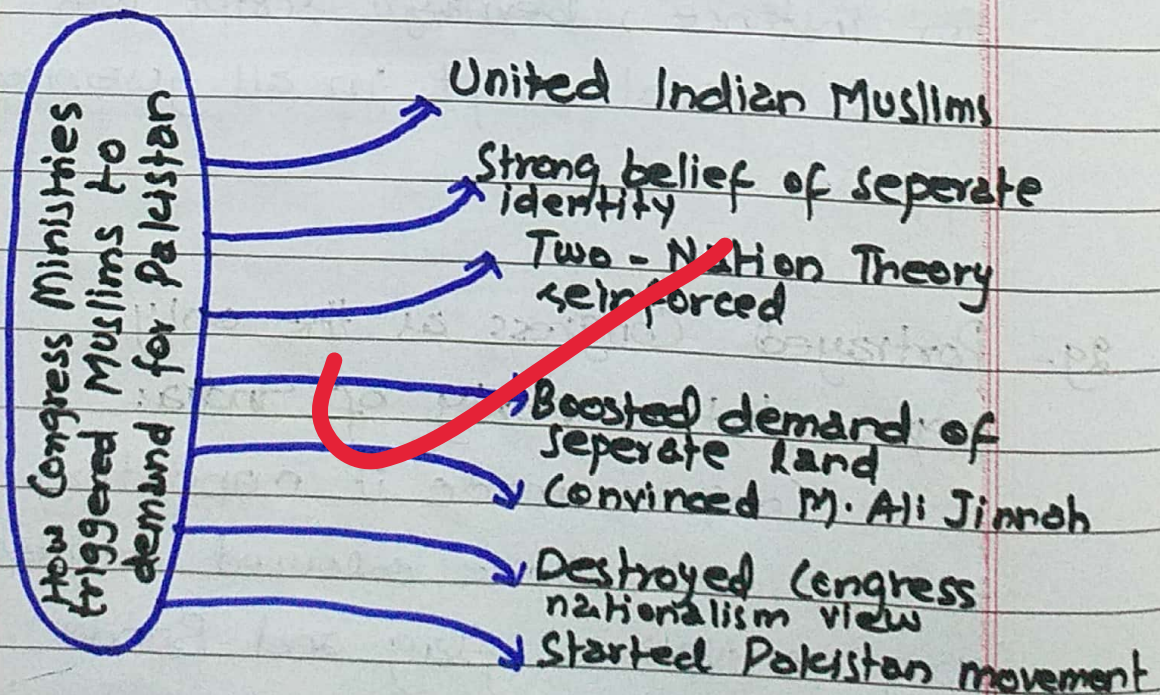 How Congress Ministries
triggered Muslims to
demand for Pakistan
United Indian Muslims
Strong belief of seperate
identity
Two-Nation Theory
reinforced
Boosted demand of
seperate land
Convinced M. Ali Jinnah
Destroyed Congress
nationalism view
Started Pakistan movement